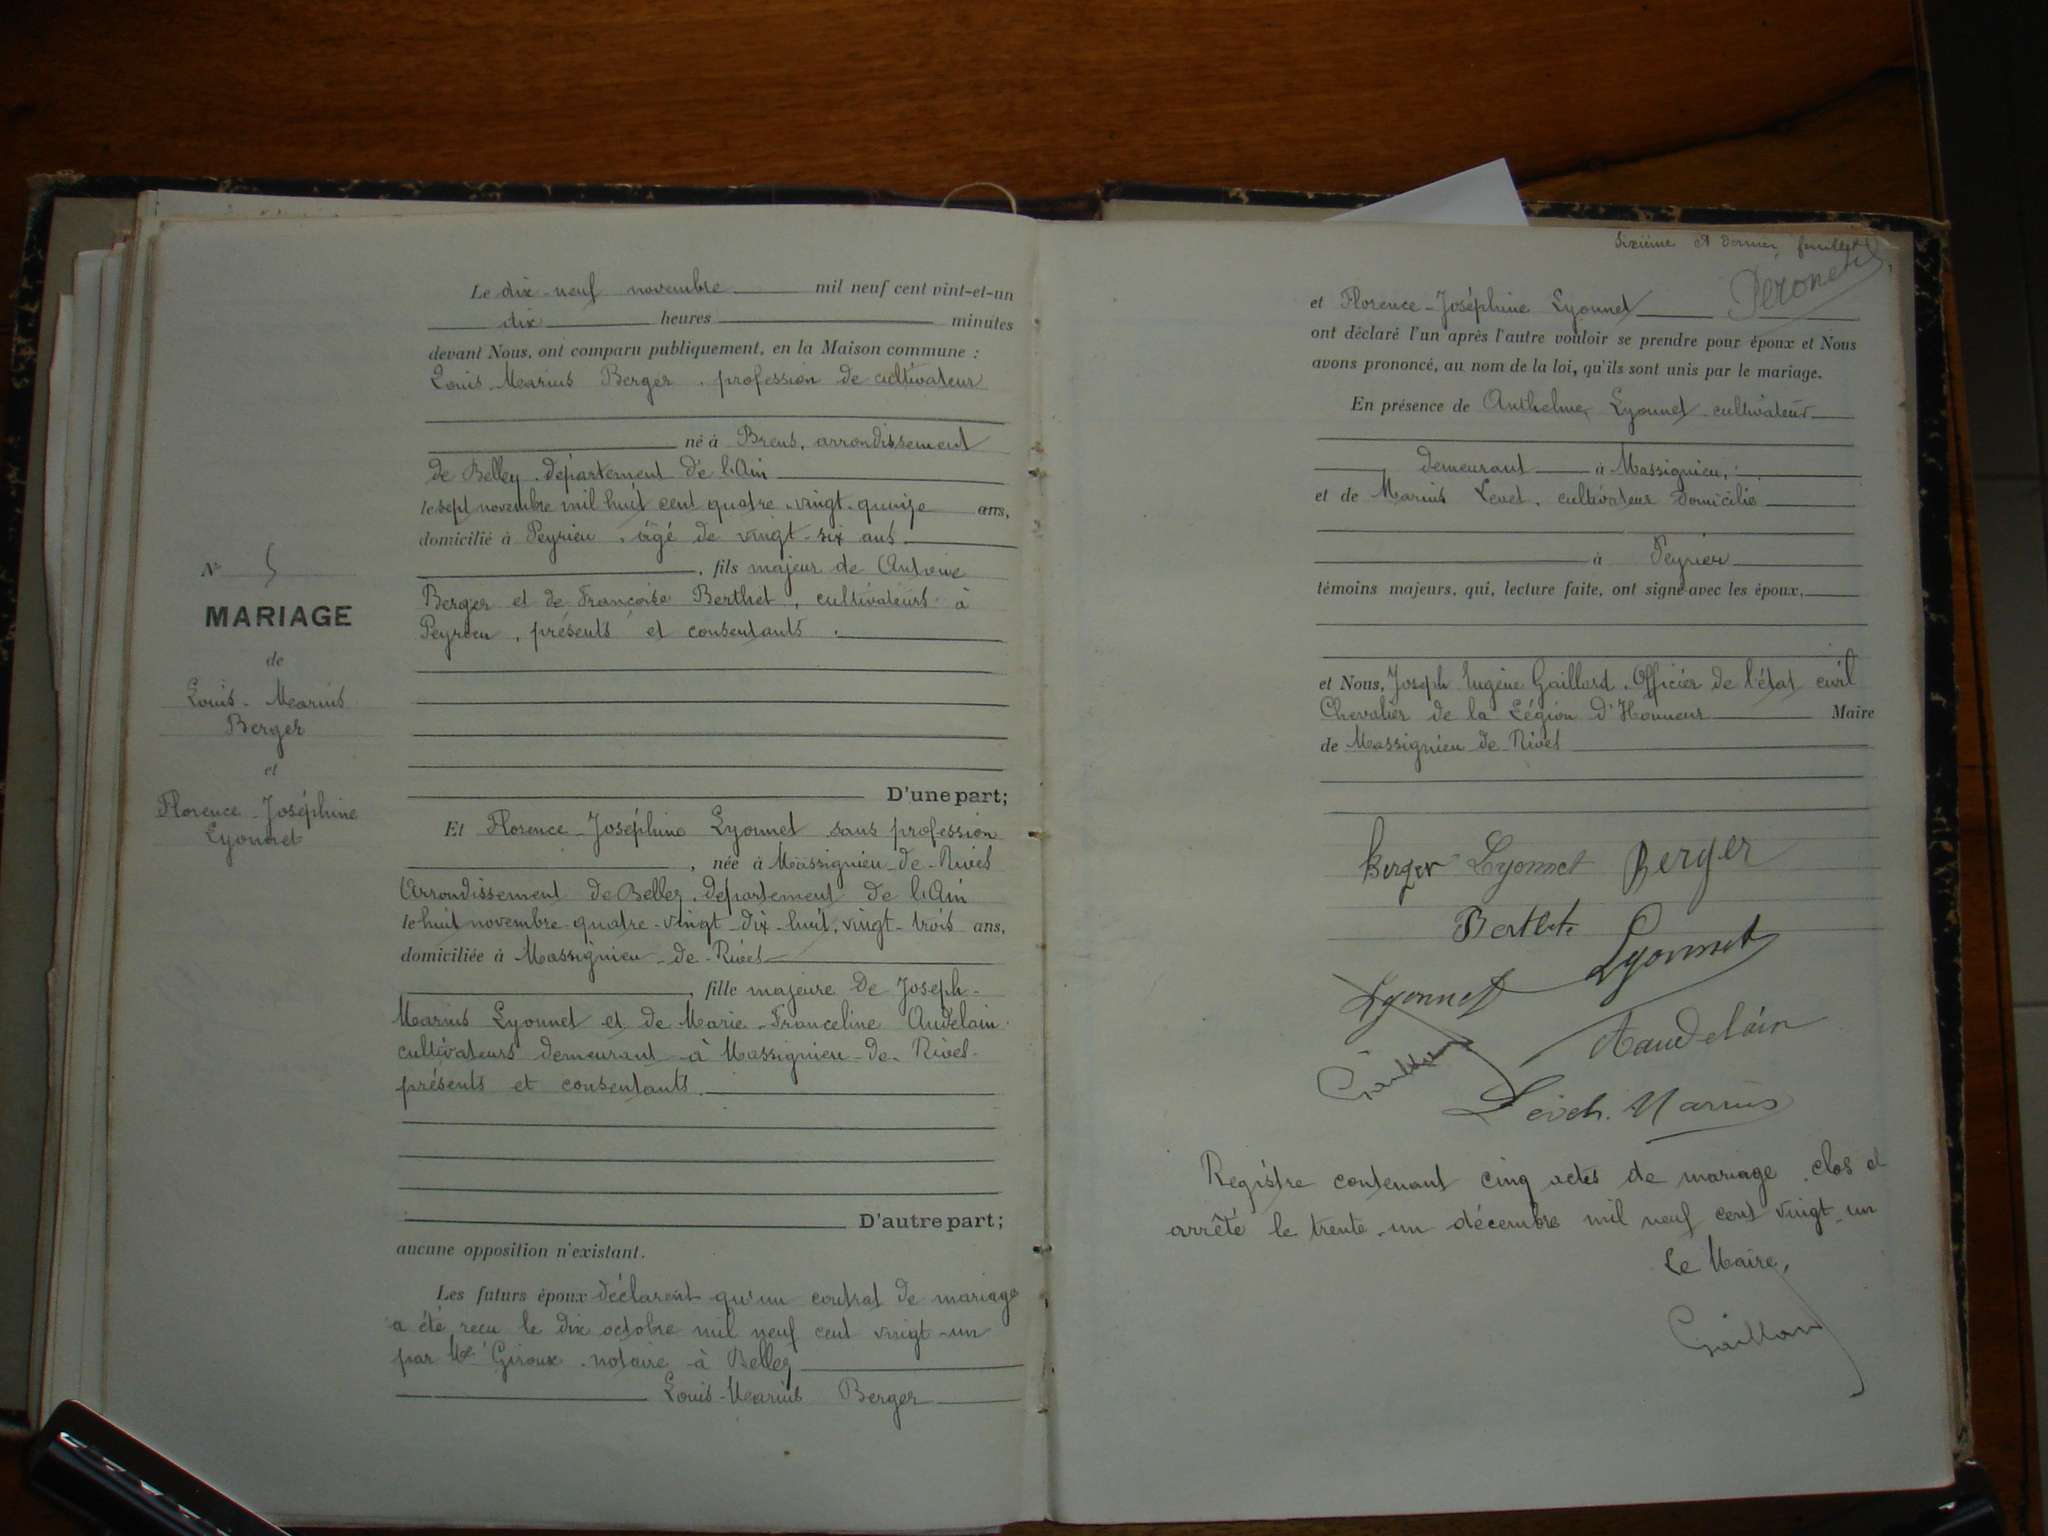 N° 5
MARIAGE
de
Louis-Marius
Berger
et
Florence-Joséphine
Lyonnet
Le dix-neuf novembre mil neuf cent vint-et-un
dix heures minutes
devant Nous, ont comparu publiquement, en la Maison commune :
Louis-Marius Berger, profession de cultivateur
né à Brens, arrondissement
de Belley, département de l'Ain
le sept novembre mil huit cent quatre-vingt-quinze ans,
domicilié à Peyrieu, âgé de vingt-six ans
, fils majeur de Antoine
Berger et de Françoise Berthet, cultivateurs à
Peyrieu, présents et consentants.
D'une part;
Et Florence-Joséphine Lyonnet sans profession
, née à Massignieu-de-Rives
Arrondissement de Belley, département de l'Ain
le huit novembre quatre-vingt-dix-huit, vingt-trois ans,
domiciliée à Massignieu-de-Rives
, fille majeure de Joseph-
Marius Lyonnet et de Marie-Franceline Audelain
cultivateurs demeurant à Massignieu-de-Rives
présents et consentants.
D'autre part;
aucune opposition n'existant.
Les futurs époux déclarent qu'un contrat de mariage
a été reçu le dix octobre mil neuf cent vingt-un
par Me Giroux, notaire à Belley
Louis-Marius Berger
Sixième et dernier feuillet
et Florence-Joséphine Lyonnet
ont déclaré l'un après l'autre vouloir se prendre pour époux et Nous
avons prononcé, au nom de la loi, qu'ils sont unis par le mariage.
En présence de Anthelme Lyonnet cultivateur
demeurant à Massignieu,
et de Marius cultivateur domicilié
à Peyrieu
témoins majeurs, qui, lecture faite, ont signé avec les époux,
et Nous, Joseph Eugène Gaillard, Officier de l'état civil
Chevalier de la Légion d'Honneur Maire
de Massignieu de Rives
Berger Lyonnet Berger
Berthet
Lyonnet Lyonnet
Audelain
Marius
Registre contenant cinq actes de mariage, clos et
arrêté le trente-un décembre mil neuf cent vingt-un
Le Maire,
Gaillard